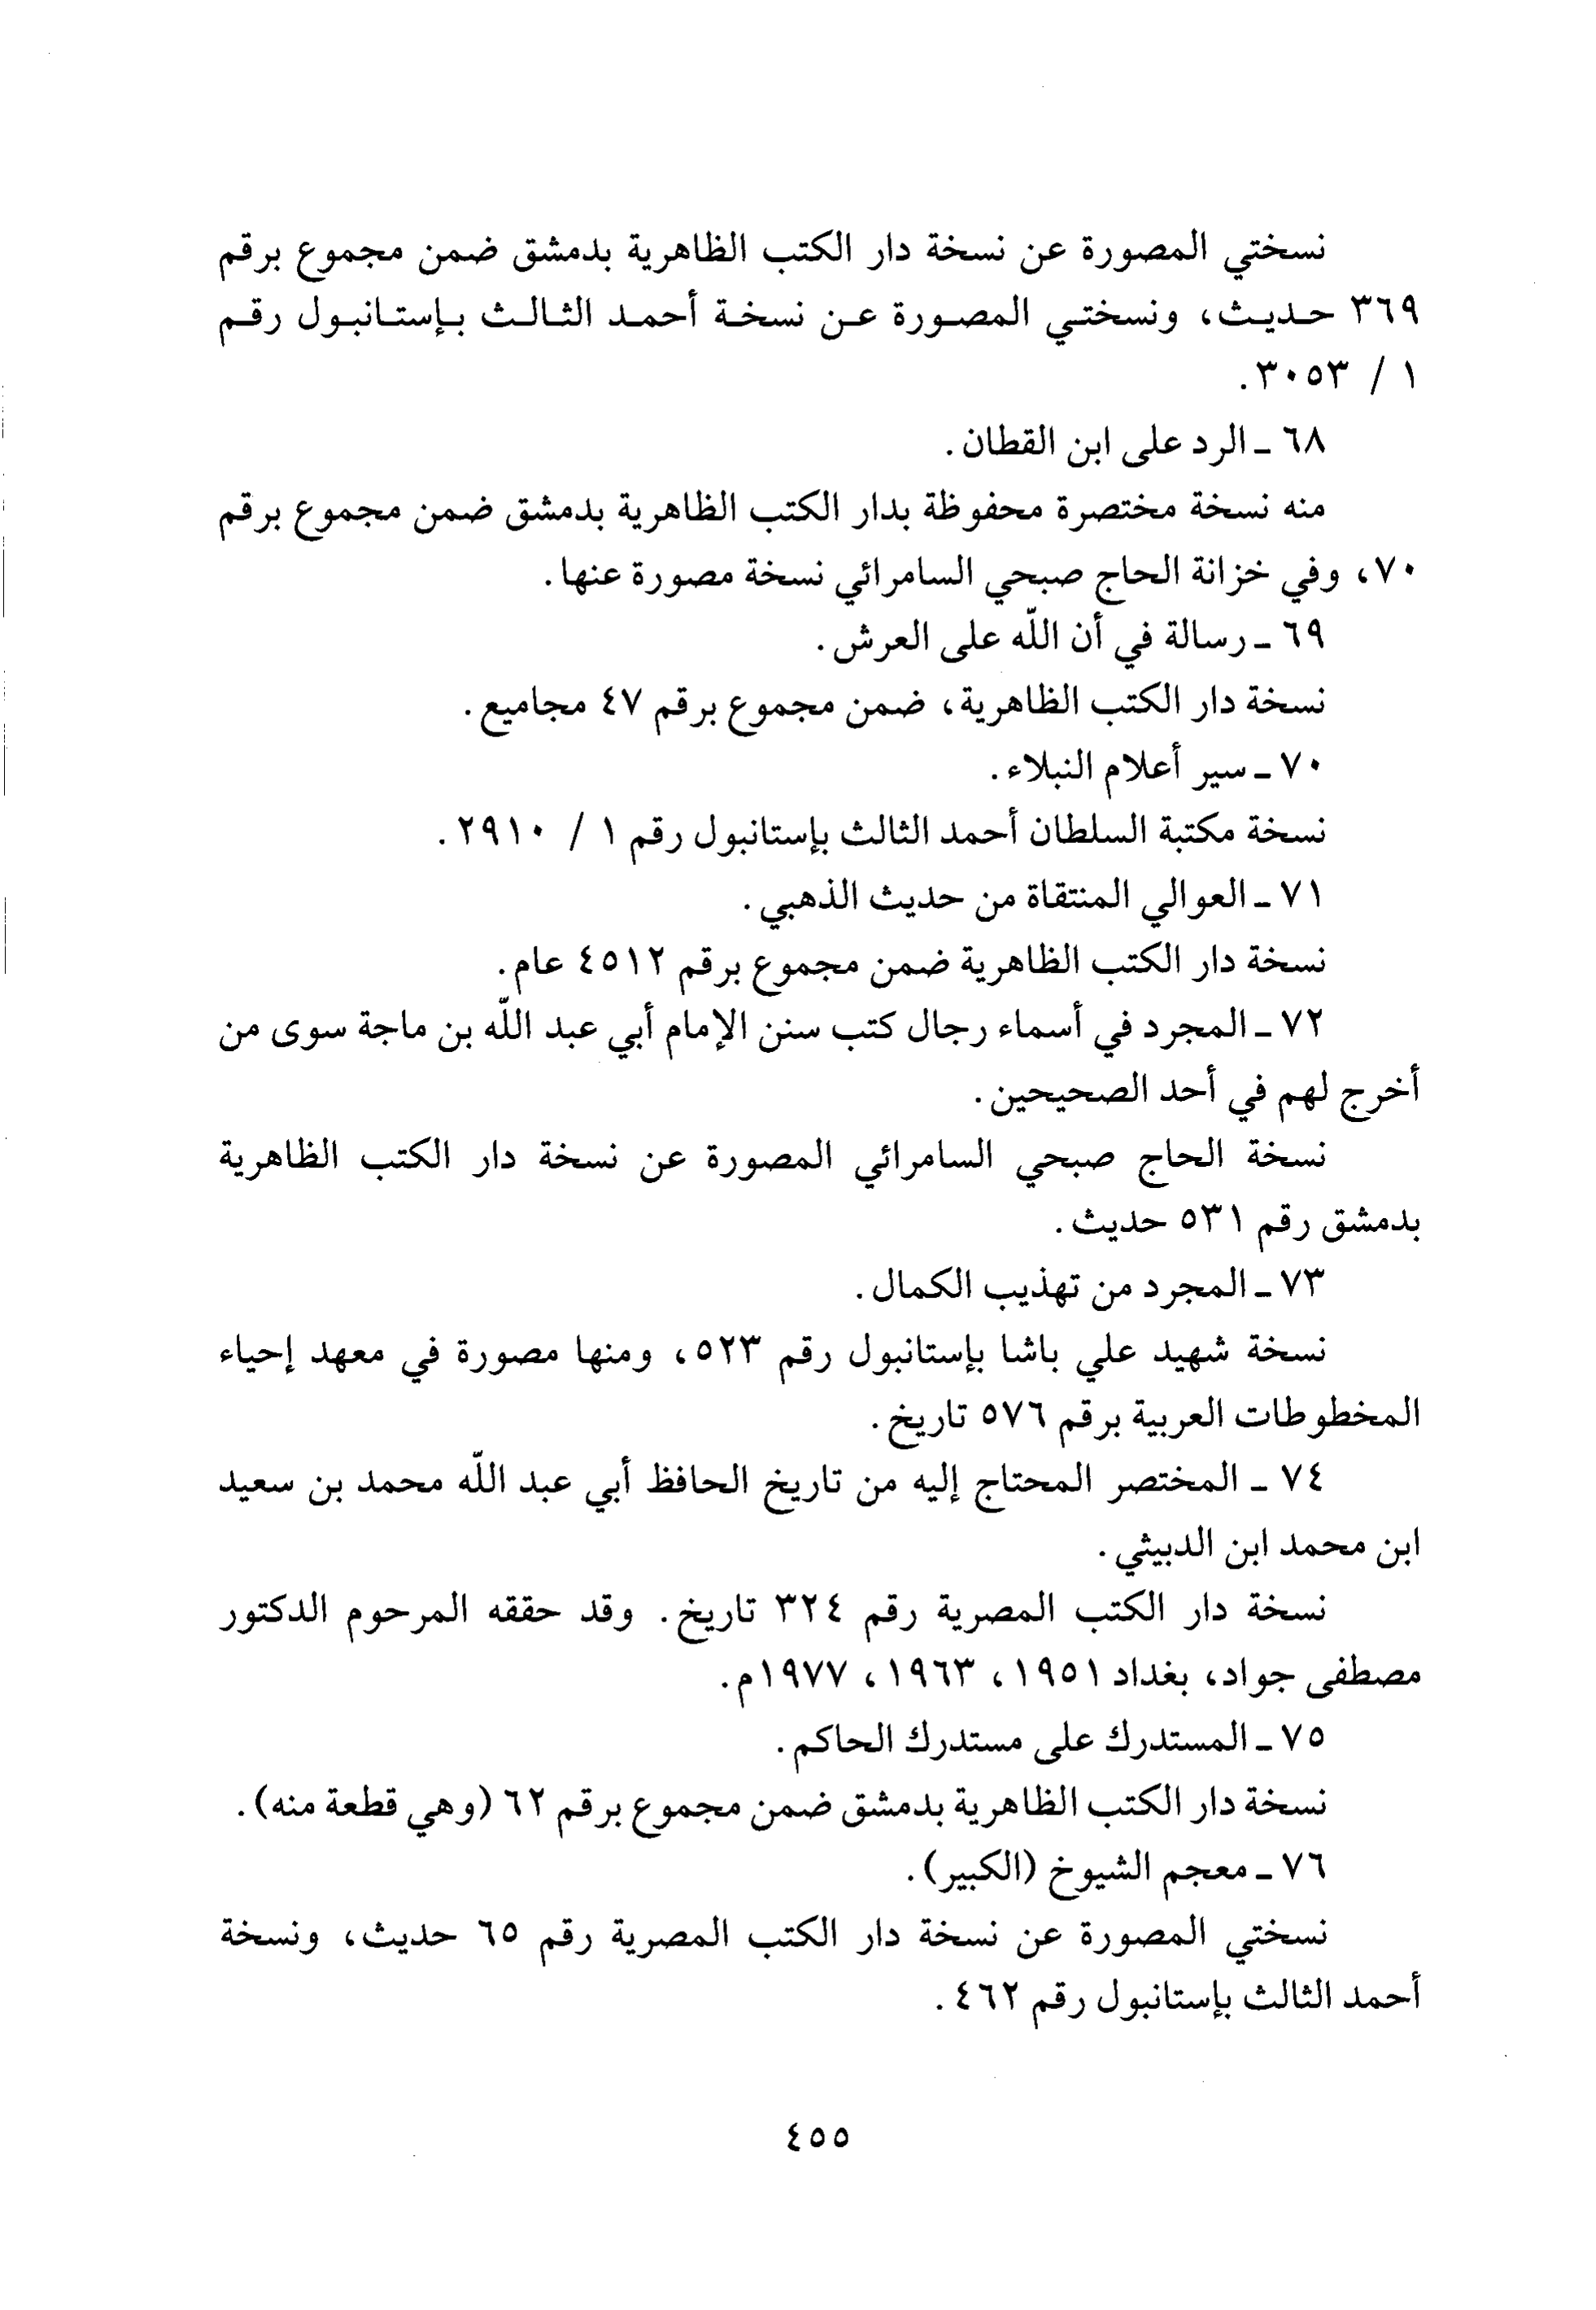 نسختي المصورة عن نسخة دار الكتب الظاهرية بدمشق ضمن مجموع برقم
٣٦٩ حديث، ونسختي المصورة عن نسخة أحمد الثالث بإستانبول رقم
١ / ٣٠٥٣.
٦٨ ـ الرد على ابن القطان.
منه نسخة مختصرة محفوظة بدار الكتب الظاهرية بدمشق ضمن مجموع برقم
٧٠، وفي خزانة الحاج صبحي السامرائي نسخة مصورة عنها.
٦٩ ـ رسالة في أن اللّه على العرش.
نسخة دار الكتب الظاهرية، ضمن مجموع برقم ٤٧ مجاميع.
٧٠ ـ سير أعلام النبلاء.
نسخة مكتبة السلطان أحمد الثالث بإستانبول رقم ١ / ٢٩١٠.
٧١ ـ العوالي المنتقاة من حديث الذهبي.
نسخة دار الكتب الظاهرية ضمن مجموع برقم ٤٥١٢ عام.
٧٢ ـ المجرد في أسماء رجال كتب سنن الإمام أبي عبد اللّه بن ماجة سوى من
أخرج لهم في أحد الصحيحين.
نسخة الحاج صبحي السامرائي المصورة عن نسخة دار الكتب الظاهرية
بدمشق رقم ٥٣١ حديث.
٧٣ ـ المجرد من تهذيب الكمال.
نسخة شهيد علي باشا بإستانبول رقم ٥٢٣، ومنها مصورة في معهد إحياء
المخطوطات العربية برقم ٥٧٦ تاريخ.
٧٤ ـ المختصر المحتاج إليه من تاريخ الحافظ أبي عبد اللّه محمد بن سعيد
ابن محمد ابن الدبيثي.
نسخة دار الكتب المصرية رقم ٣٢٤ تاريخ. وقد حققه المرحوم الدكتور
مصطفى جواد، بغداد ١٩٥١، ١٩٦٣، ١٩٧٧م.
٧٥ ـ المستدرك على مستدرك الحاكم.
نسخة دار الكتب الظاهرية بدمشق ضمن مجموع برقم ٦٢ (وهي قطعة منه).
٧٦ ـ معجم الشيوخ (الكبير).
نسختي المصورة عن نسخة دار الكتب المصرية رقم ٦٥ حديث، ونسخة
أحمد الثالث بإستانبول رقم ٤٦٢.
٤٥٥